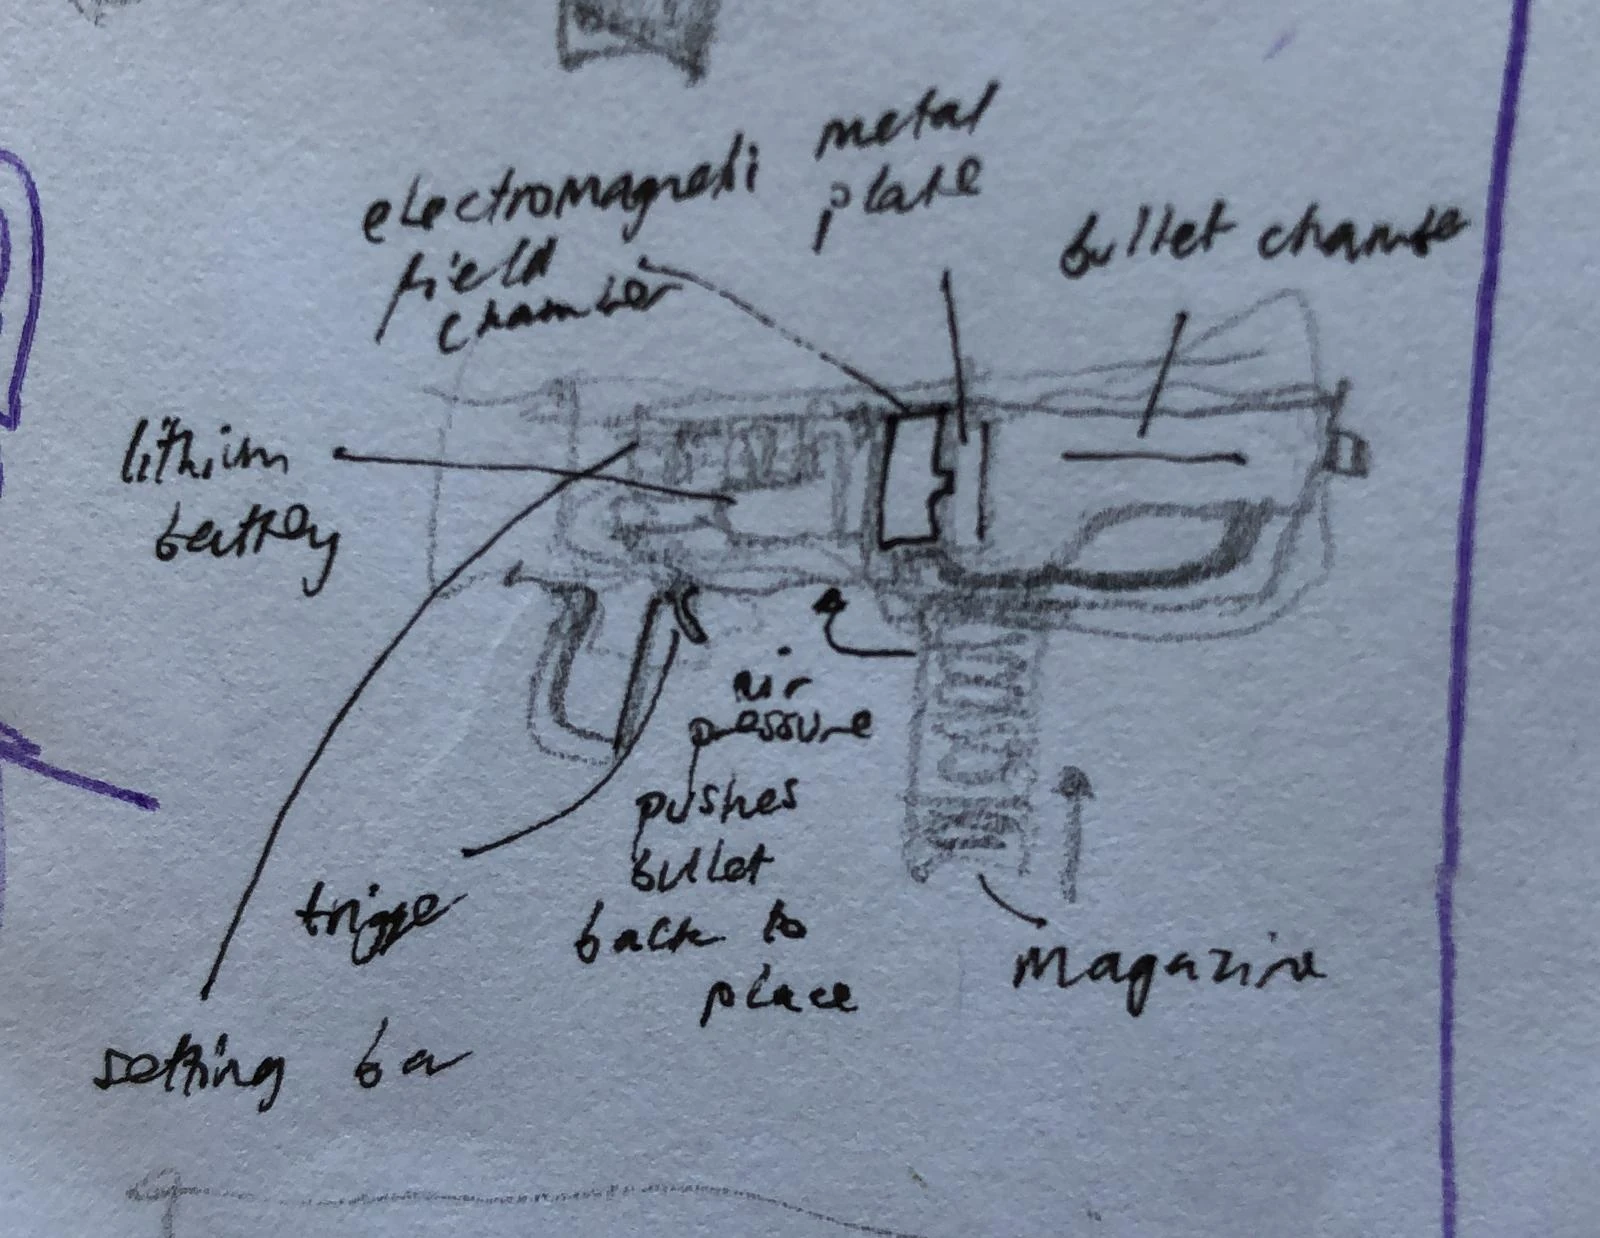 electromagneti
field
chamber
metal
plate
bullet chambe
lithium
battery
air
pressure
pushes
bullet
back to
place
trigge
magazine
setting ba